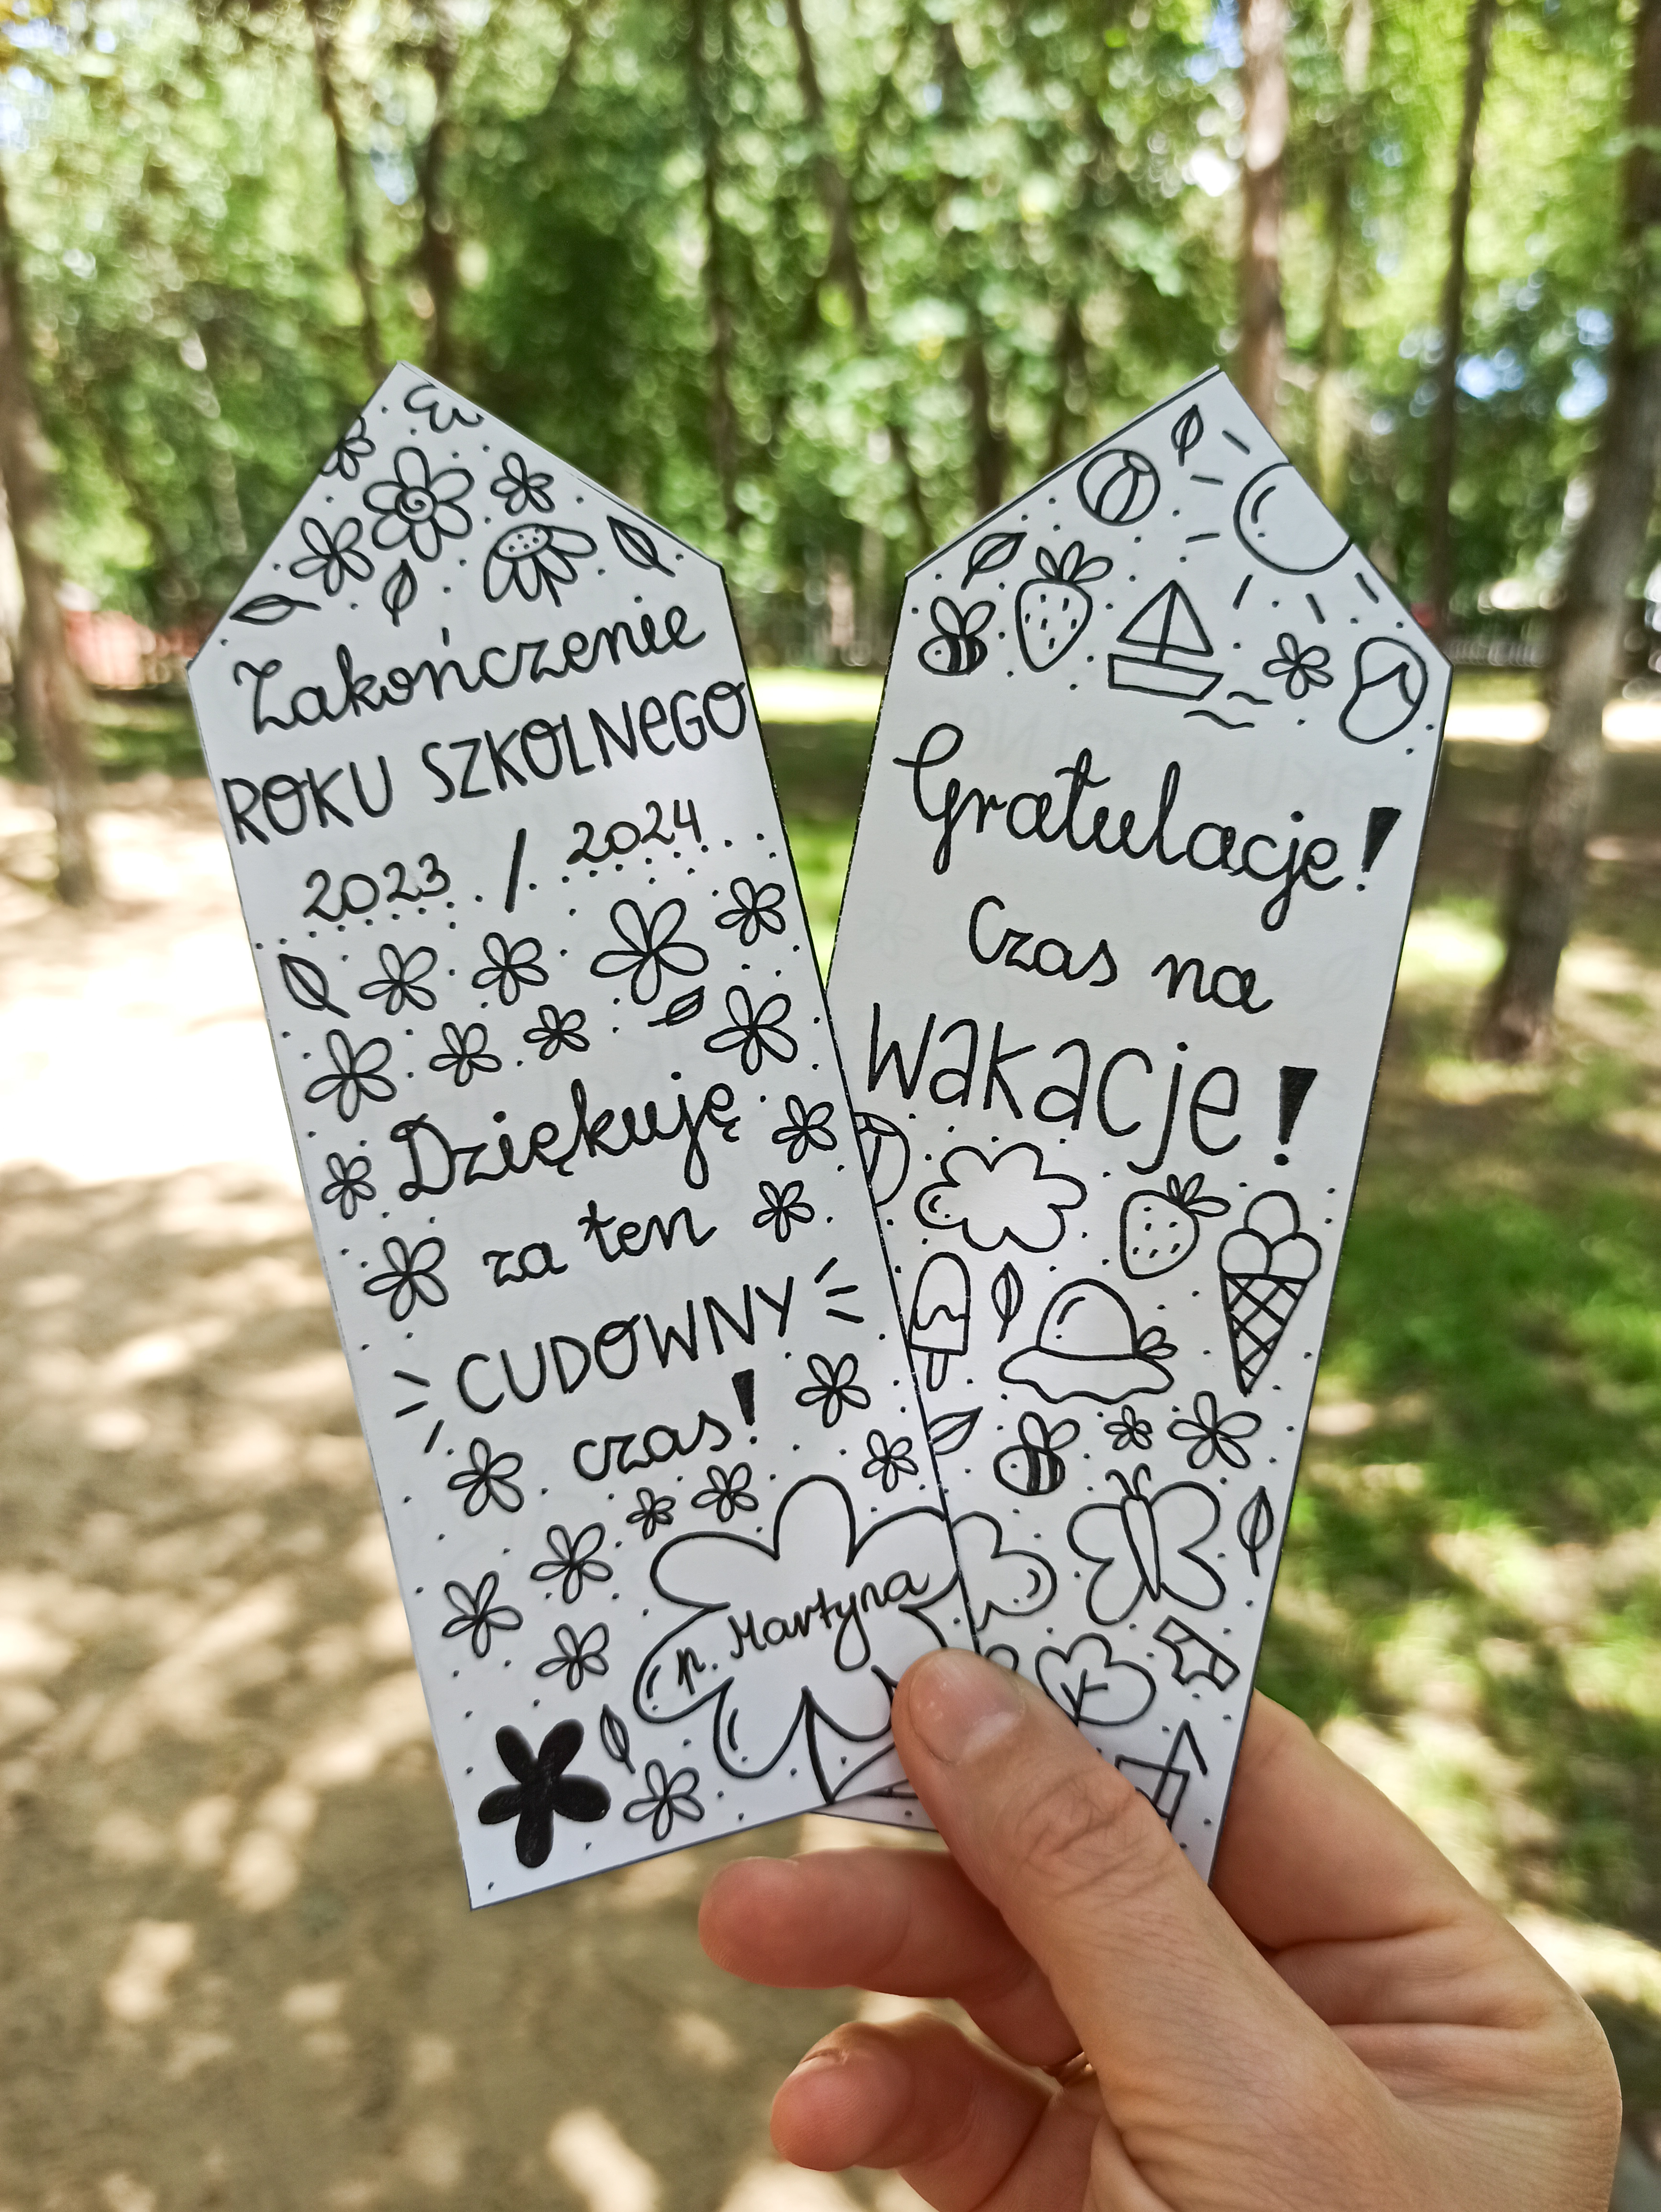 Zakończenie
ROKU SZKOLNEGO
2023 / 2024
Dziękuję
za ten
CUDOWNY
czas!
p. Martyna
Gratulacje!
Czas na
wakacje!